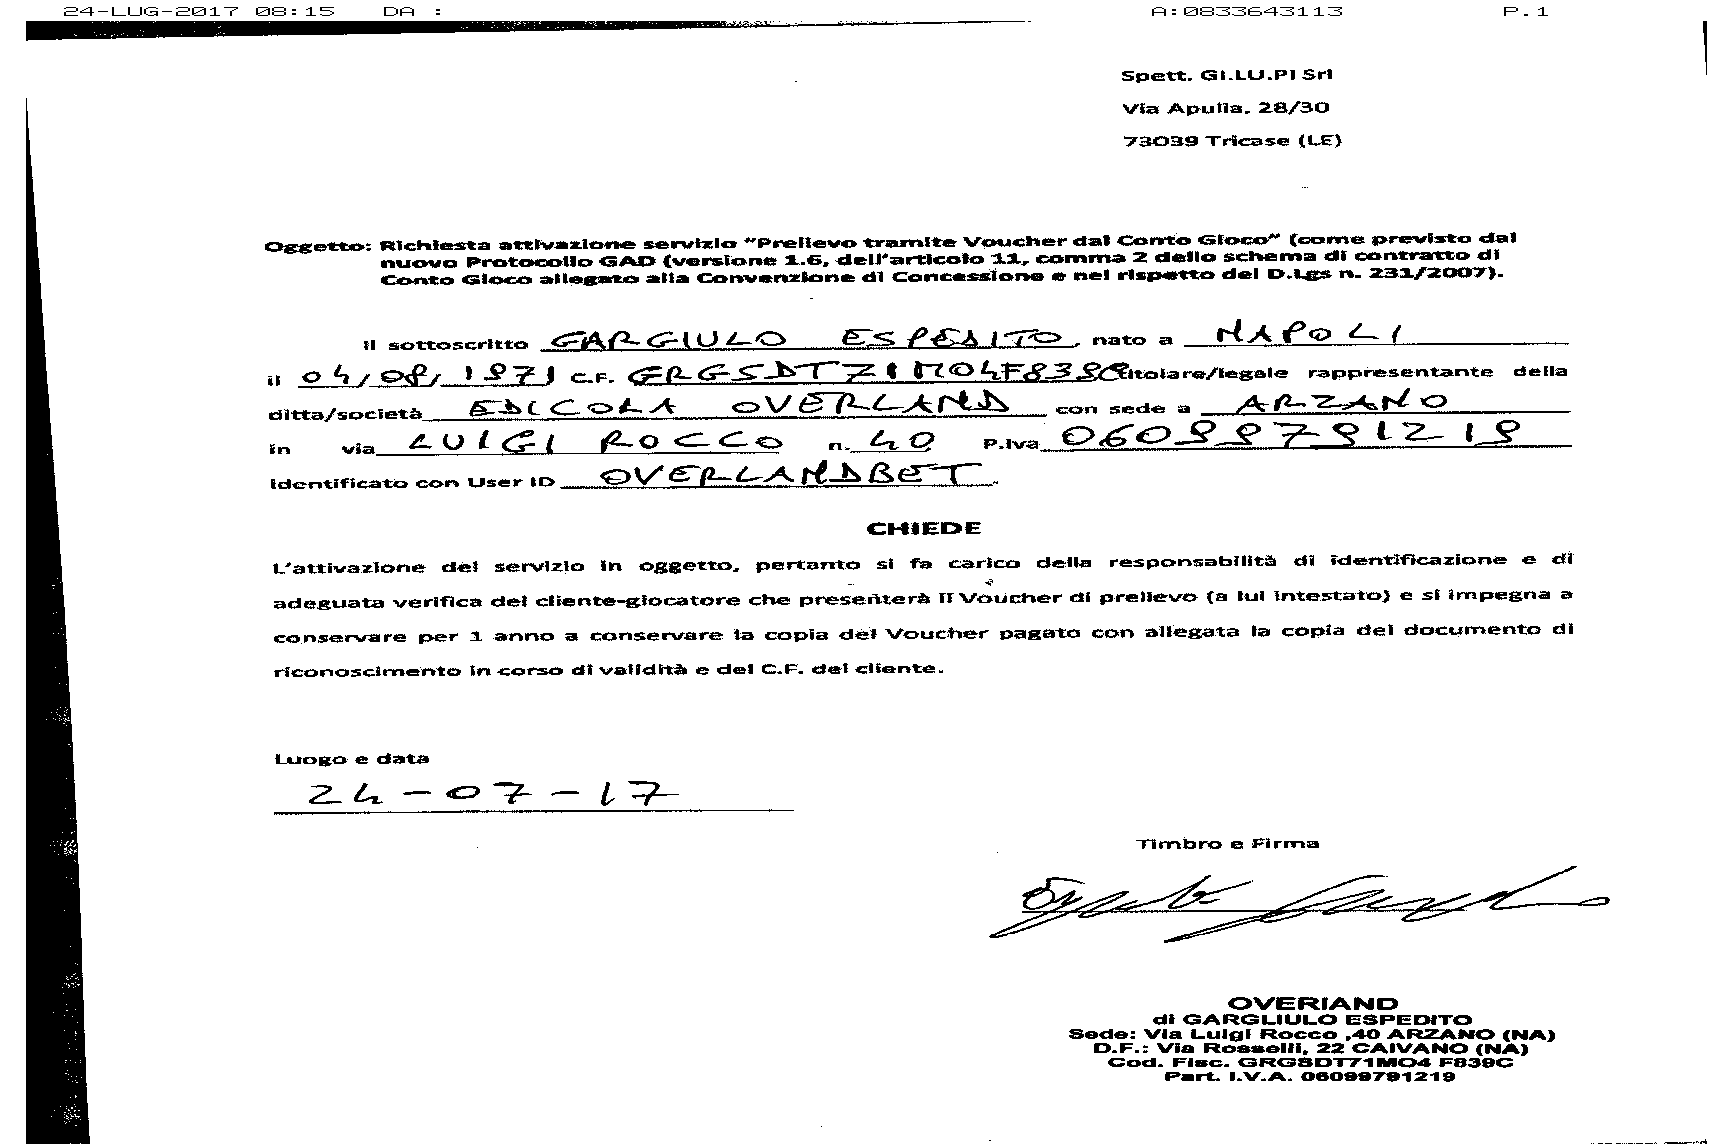 24-LUG-2017 08:15 DA : A:0833643113 P.1
Spett. GI.LU.PI Srl
Via Apulia, 28/30
73039 Tricase (LE)
Oggetto: Richiesta attivazione servizio "Prelievo tramite Voucher dal Conto Gioco" (come previsto dal
nuovo Protocollo GAD (versione 1.6, dell'articolo 11, comma 2 dello schema di contratto di
Conto Gioco allegato alla Convenzione di Concessione e nel rispetto del D.Lgs n. 231/2007).
Il sottoscritto GARGIULO ESPEDITO, nato a NAPOLI
il 04/08/1971 C.F. GRGSDT71M04F839C titolare/legale rappresentante della
ditta/società EDICOLA OVERLAND con sede a ARZANO
in via LUIGI ROCCO n. 40 P.Iva 06099791219
identificato con User ID OVERLANDBET.
CHIEDE
L'attivazione del servizio in oggetto, pertanto si fa carico della responsabilità di identificazione e di
adeguata verifica del cliente-giocatore che presenterà il Voucher di prelievo (a lui intestato) e si impegna a
conservare per 1 anno a conservare la copia del Voucher pagato con allegata la copia del documento di
riconoscimento in corso di validità e del C.F. del cliente.
Luogo e data
24-07-17
Timbro e Firma
OVERIAND
di GARGLIULO ESPEDITO
Sede: Via Luigi Rocco ,40 ARZANO (NA)
D.F.: Via Rosselli, 22 CAIVANO (NA)
Cod. Fisc. GRGSDT71M04 F839C
Part. I.V.A. 06099791219